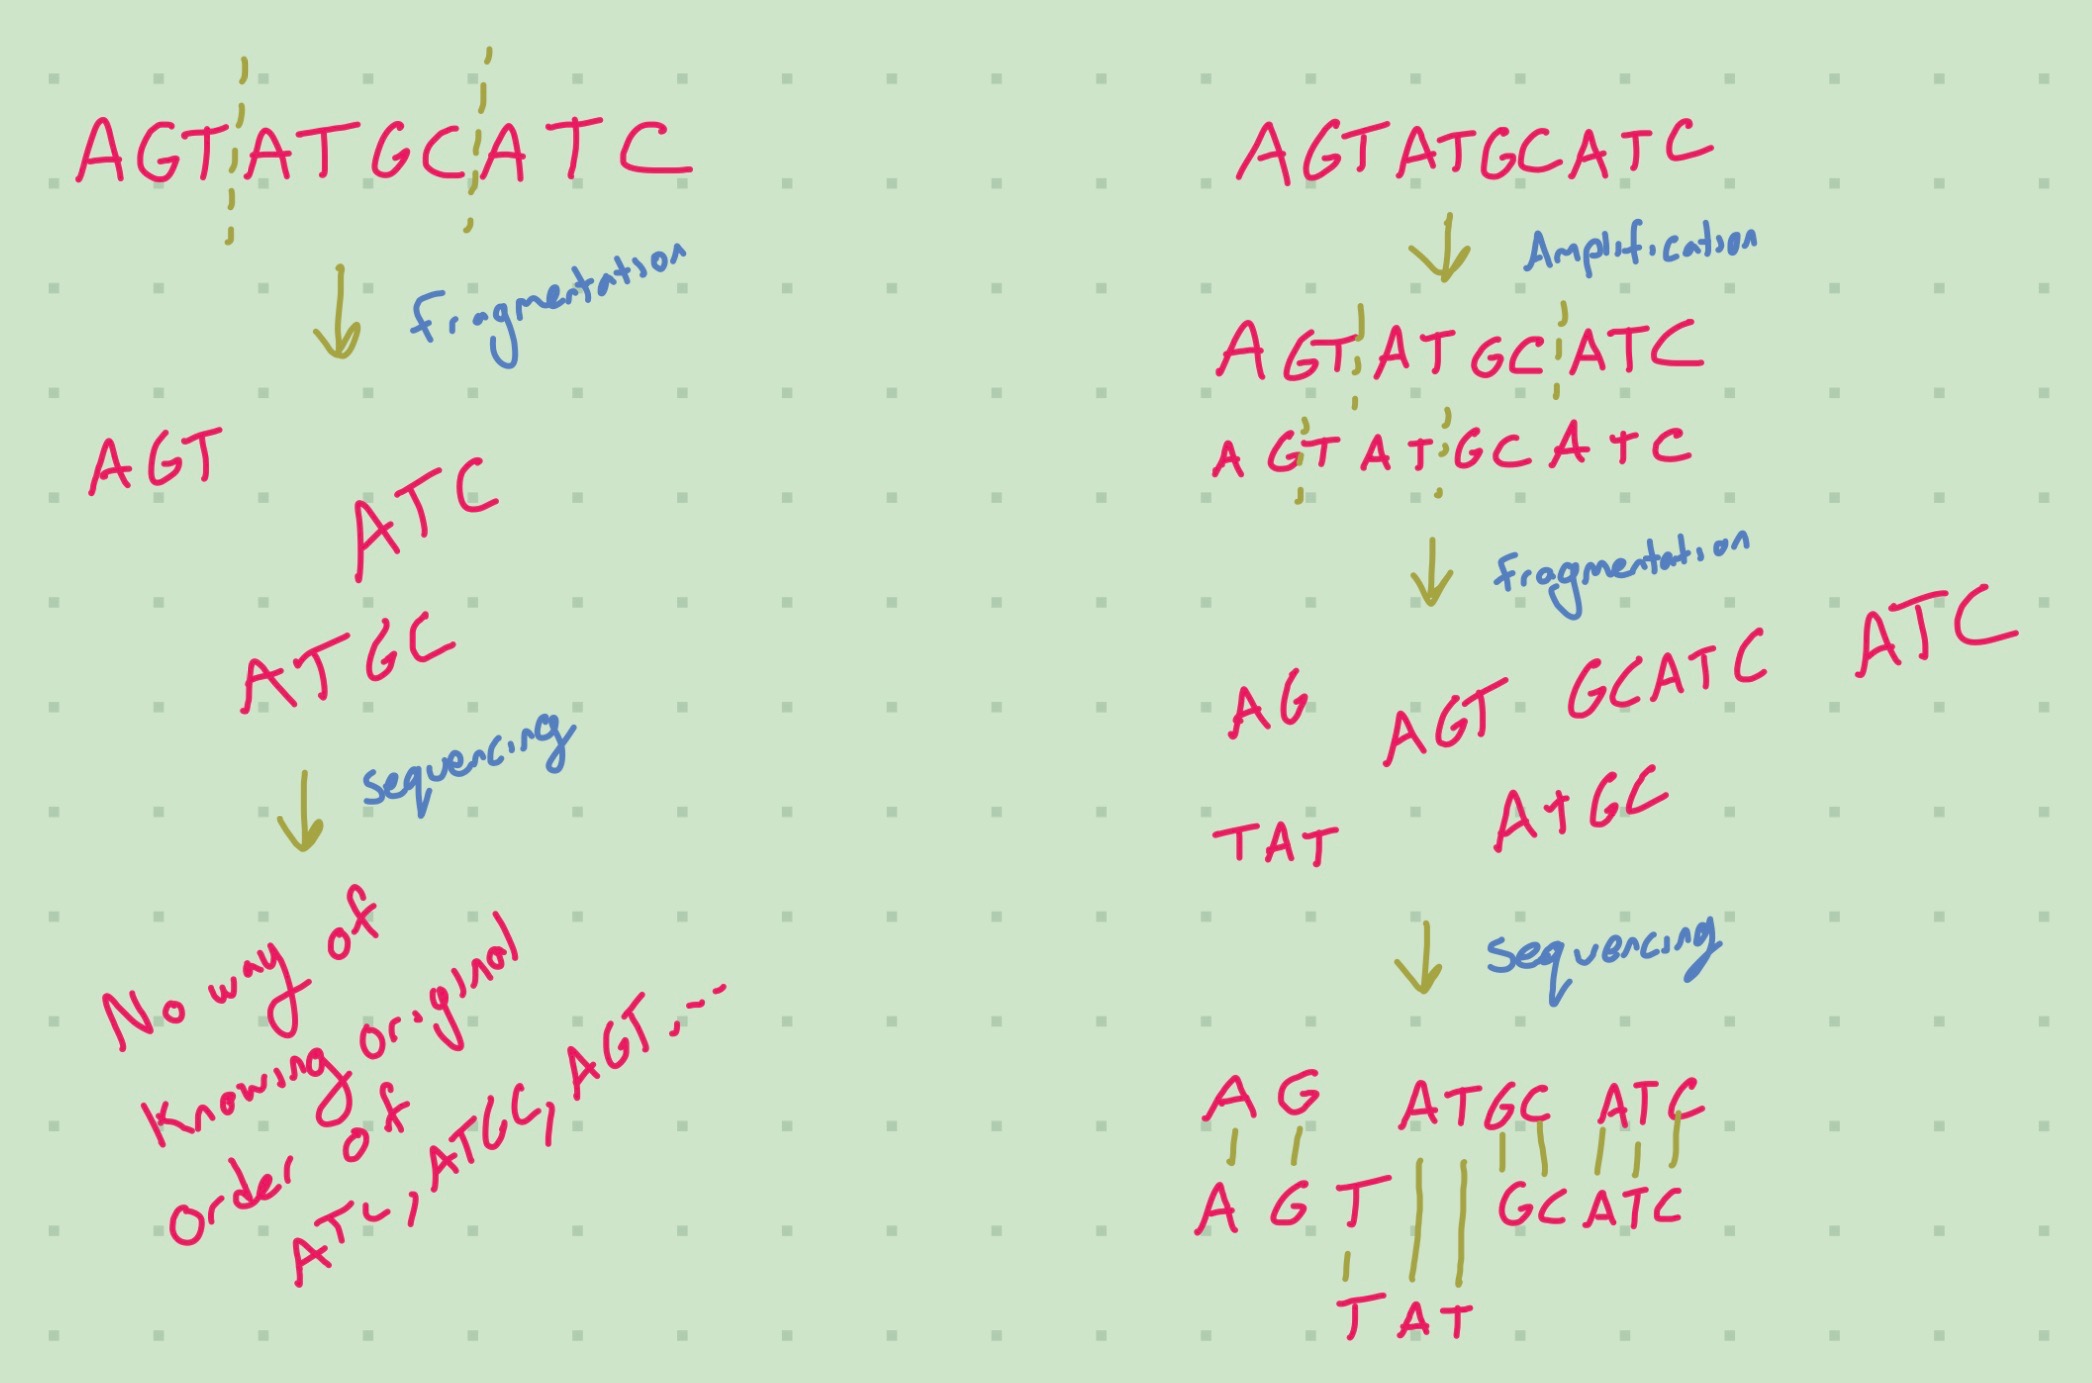 AGTATGCATC
Fragmentation
AGT
ATC
ATGC
Sequencing
No way of
Knowing original
order of
ATC, ATGC, AGT...
AGTATGCATC
Amplification
AGTATGCATC
AGTATGCATC
fragmentation
AG AGT GCATC ATC
TAT ATGC
Sequencing
AG ATGC ATC
AGT GCATC
TAT